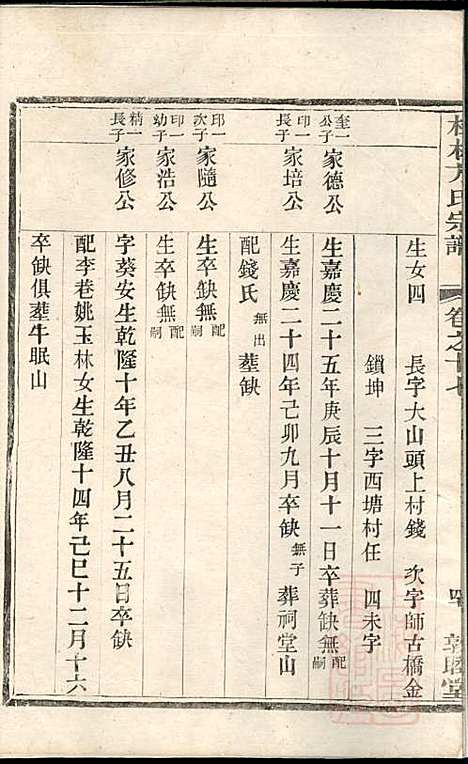 氏宗譜 卷之十七 四 敦睦堂
生女四 長字大山頭上村錢 次字師古橋金
鎖坤 三字西塘村任 四未字
奎一公子 家德公 生嘉慶二十五年庚辰十月十一日卒葬缺無配嗣
印一長子 家培公 生嘉慶二十四年己卯九月卒缺無子葬祠堂山
配錢氏無出塟缺
印一次子 家隨公 生卒缺無配嗣
印一幼子 家浩公 生卒缺無配嗣
精一長子 家修公 字葵安生乾隆十年乙丑八月二十五日卒缺
配李巷姚玉林女生乾隆十四年己巳十二月十六
卒缺俱塟牛眠山